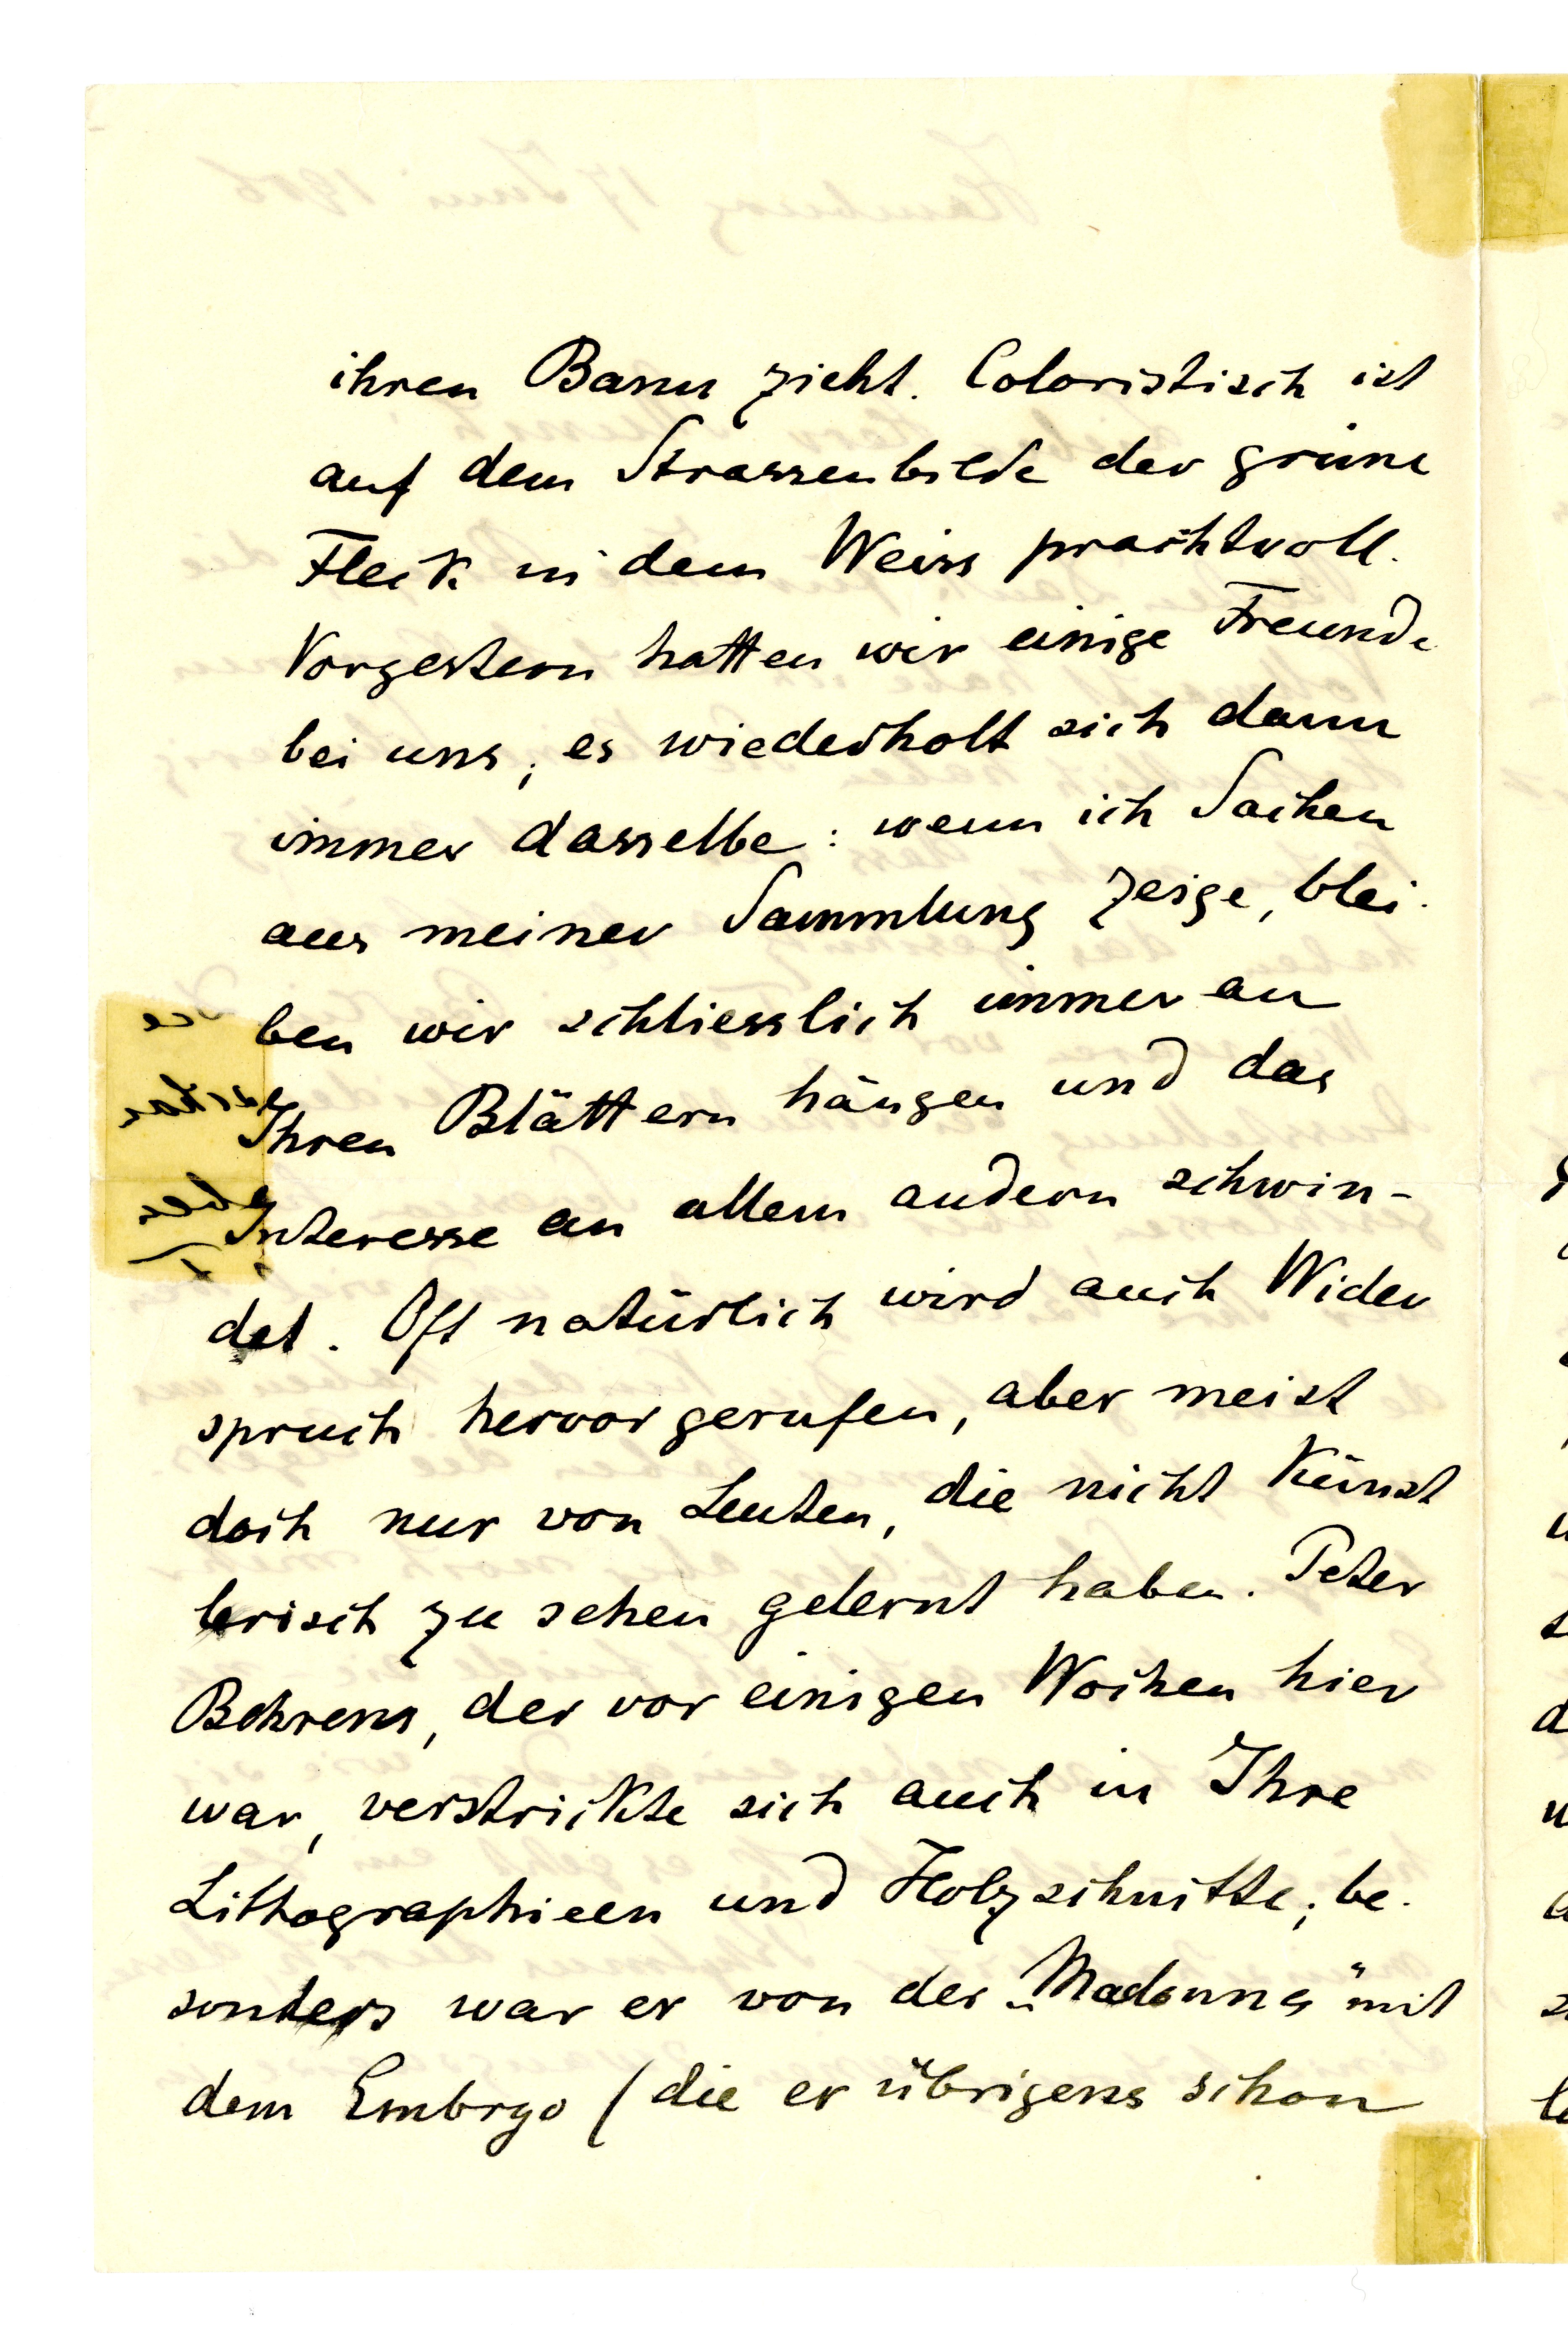 ihren Bann zieht. Coloristisch ist
auf dem Strassenbilde der grüne
Fleck in dem Weiss prachtvoll.
Vorgestern hatten wir einige Freunde
bei uns; es wiederholt sich dann
immer dasselbe: wenn ich Sachen
aus meiner Sammlung zeige, blei-
ben wir schliesslich immer an
Ihren Blättern hängen und das
Interesse an allem andern schwin-
det. Oft natürlich wird auch Wider
spruch hervorgerufen, aber meist
doch nur von Leuten, die nicht künst
lerisch zu sehen gelernt haben. Peter
Behrens, der vor einigen Wochen hier
war, verstrickte sich auch in Ihre
Lithographieen und Holzschnitte; be-
sonders war er von der „Madonna" mit
dem Embryo (die er übrigens schon